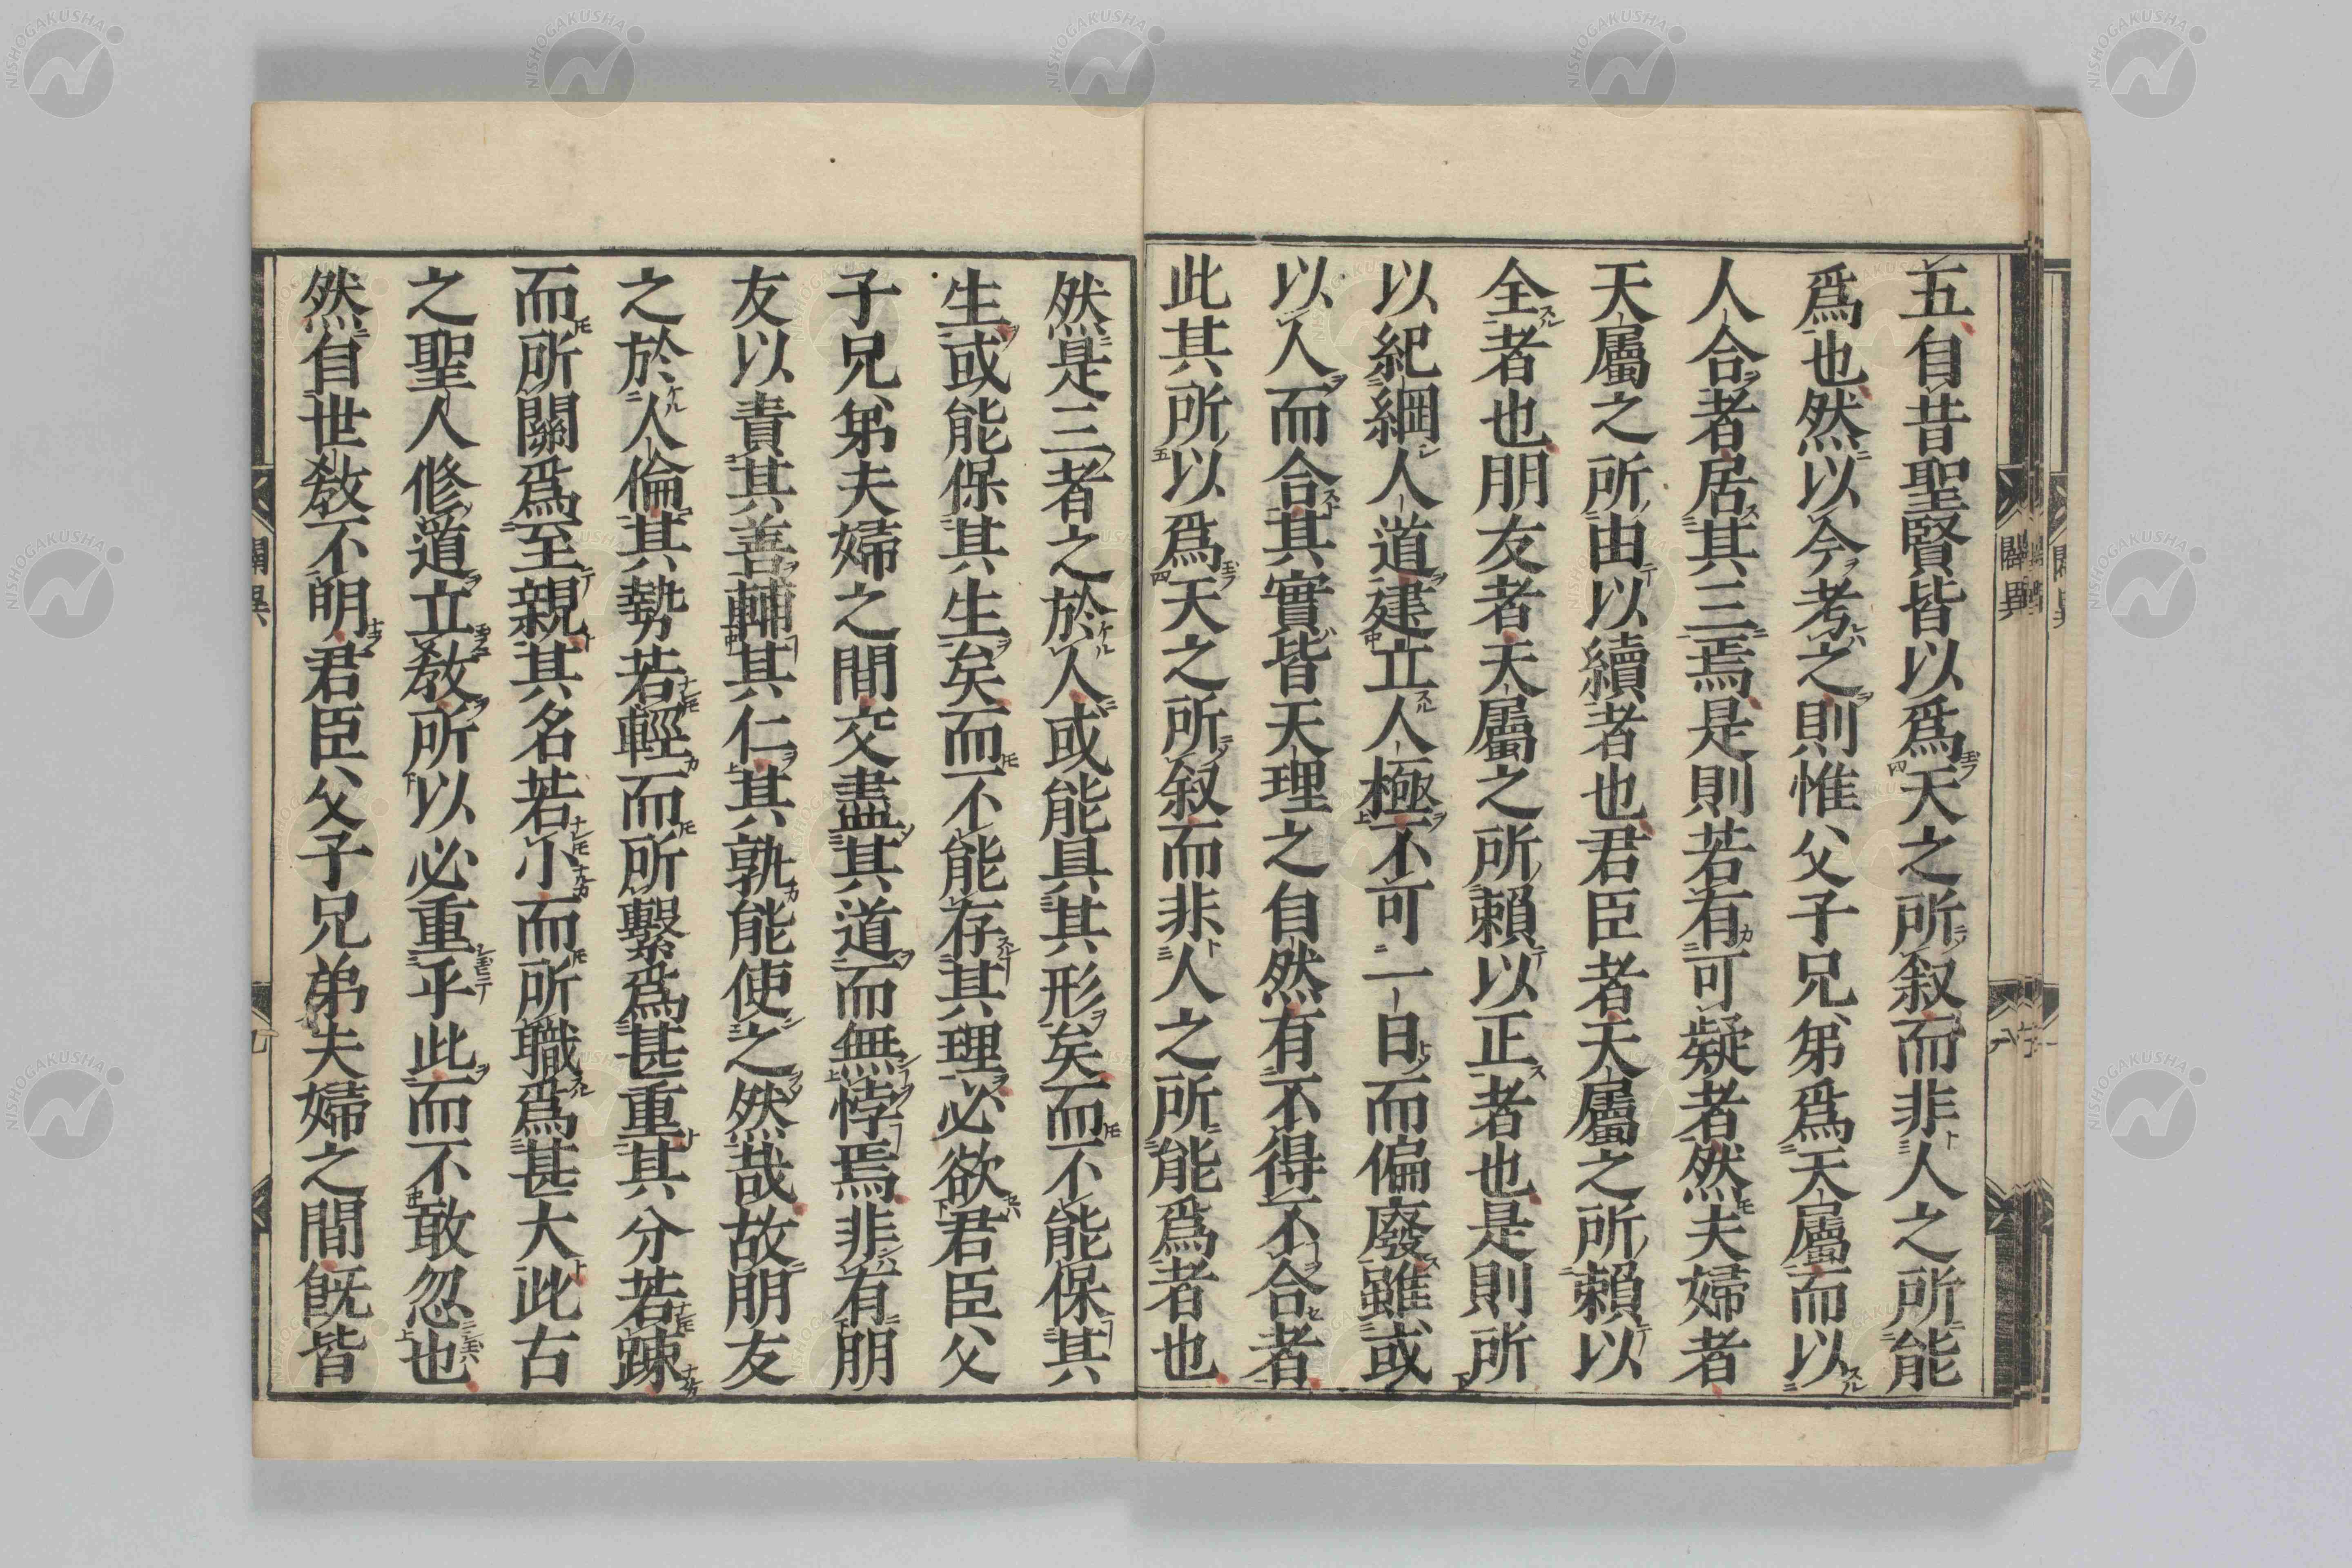 五自昔聖賢皆以爲天之所叙而非人之所能
爲也然以今考之則惟父子兄弟爲天屬而以
人合者居其三焉是則若有可疑者然夫婦者
天屬之所由以續者也君臣者天屬之所賴以
全者也朋友者天屬之所賴以正者也是則所
以紀綱人道建立人極不可一日而偏廢雖或
以人而合其實皆天理之自然有不得不合者
此其所以爲天之所叙而非人之所能爲者也
然是三者之於人或能具其形矣而不能保其
生或能保其生矣而不能存其理必欲君臣父
子兄弟夫婦之間交盡其道而無悖焉非有朋
友以責其善輔其仁其孰能使之然哉故朋友
之於人倫其勢若輕而所繫爲甚重其分若踈
而所關爲至親其名若小而所職爲甚大此古
之聖人修道立教所以必重乎此而不敢忽也
然自世教不明君臣父子兄弟夫婦之間旣皆
闢異
八
闢異
九
NISHOGAKUSHA